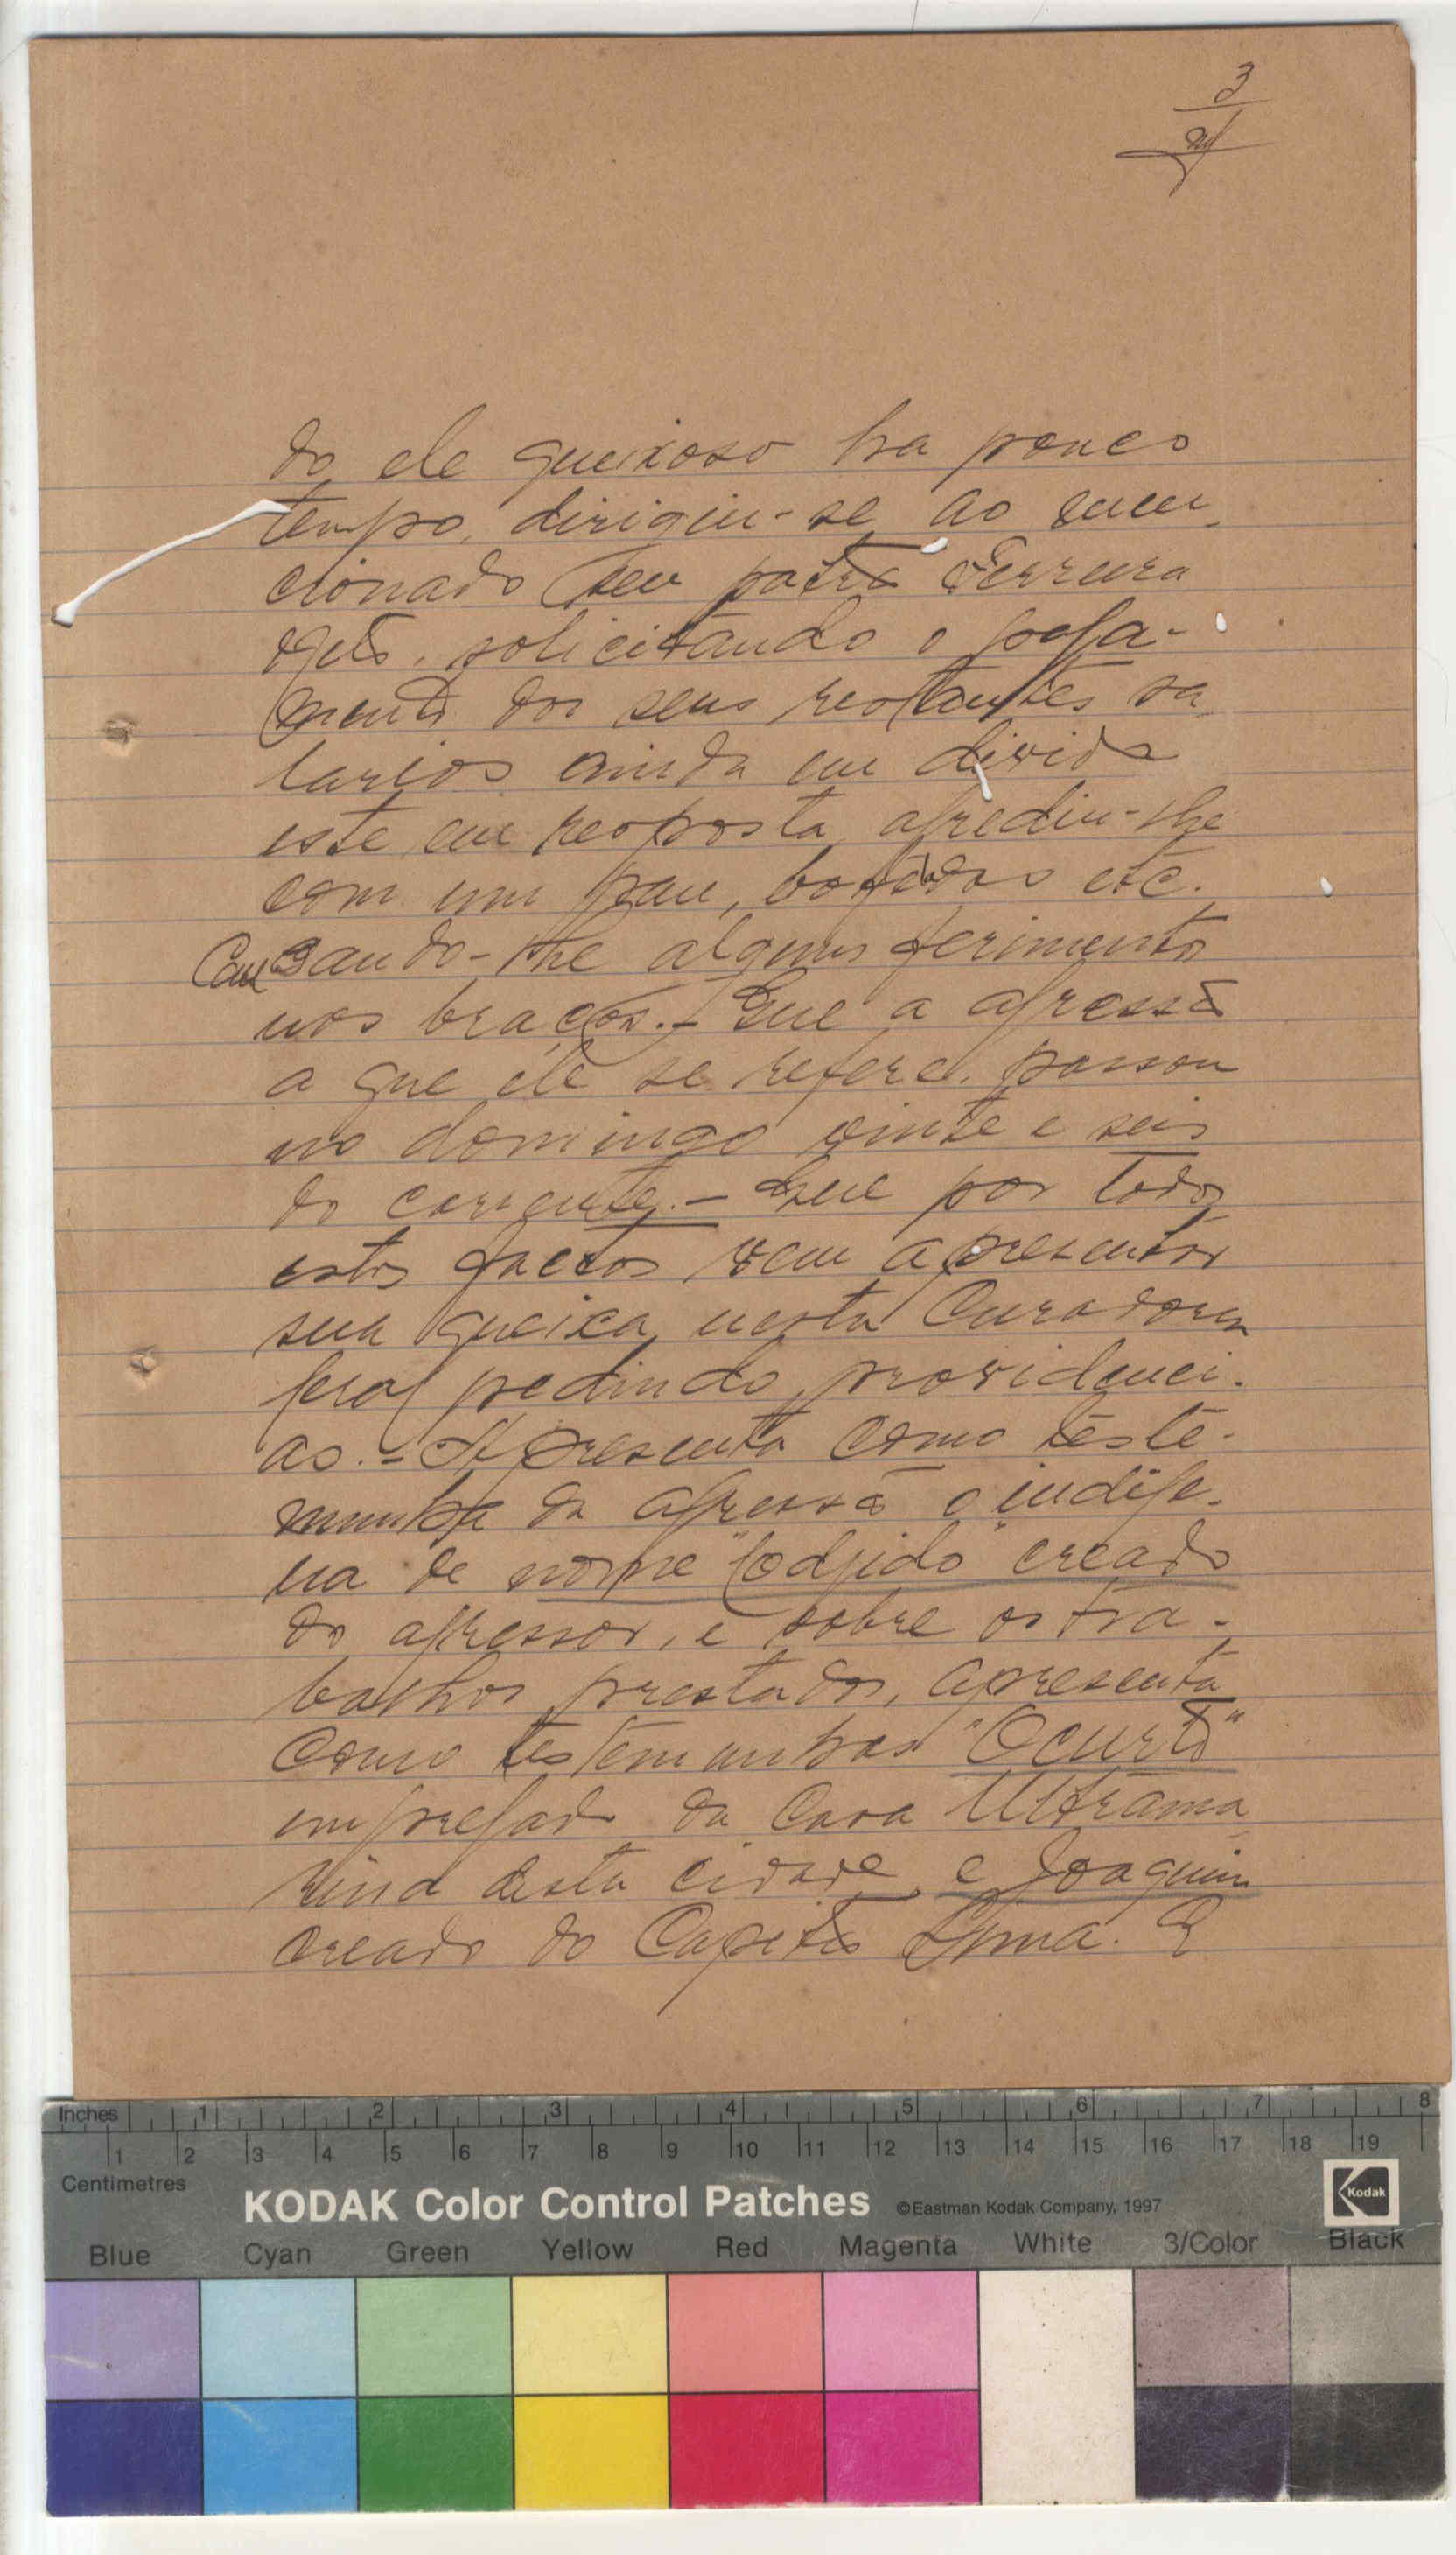 3
do ele queixoso ha pouco
tempo, dirigiu-se ao men-
cionado seu patrão Ferreira
solicitando o paga-
mento dos seus restantes sa
larios ainda em divida
este em resposta, agrediu-lhe
com um pau, bofetadas etc.
Causando-lhe alguns ferimentos
nos braços.- Que a agressão
a que ele se refere, passou
no domingo vinte e seis
do corrente.- Que por todos
estes factos vem apresentar
sua queixa nesta Curadoria
Geral pedindo providenci-
as.- Apresenta como teste-
munha da agressão o indige-
na de nome "Codjido" creado
do agressor, e sobre os tra-
balhos prestados, apresenta
como testemunhas "Ocurtó"
empregado da Casa Ultrama
rina desta cidade, e Joaquim
creado do Capitão Lima. E
Inches 1 2 3 4 5 6 7 8
1 2 3 4 5 6 7 8 9 10 11 12 13 14 15 16 17 18 19
Centimetres
KODAK Color Control Patches ©Eastman Kodak Company, 1997 Kodak
Blue Cyan Green Yellow Red Magenta White 3/Color Black